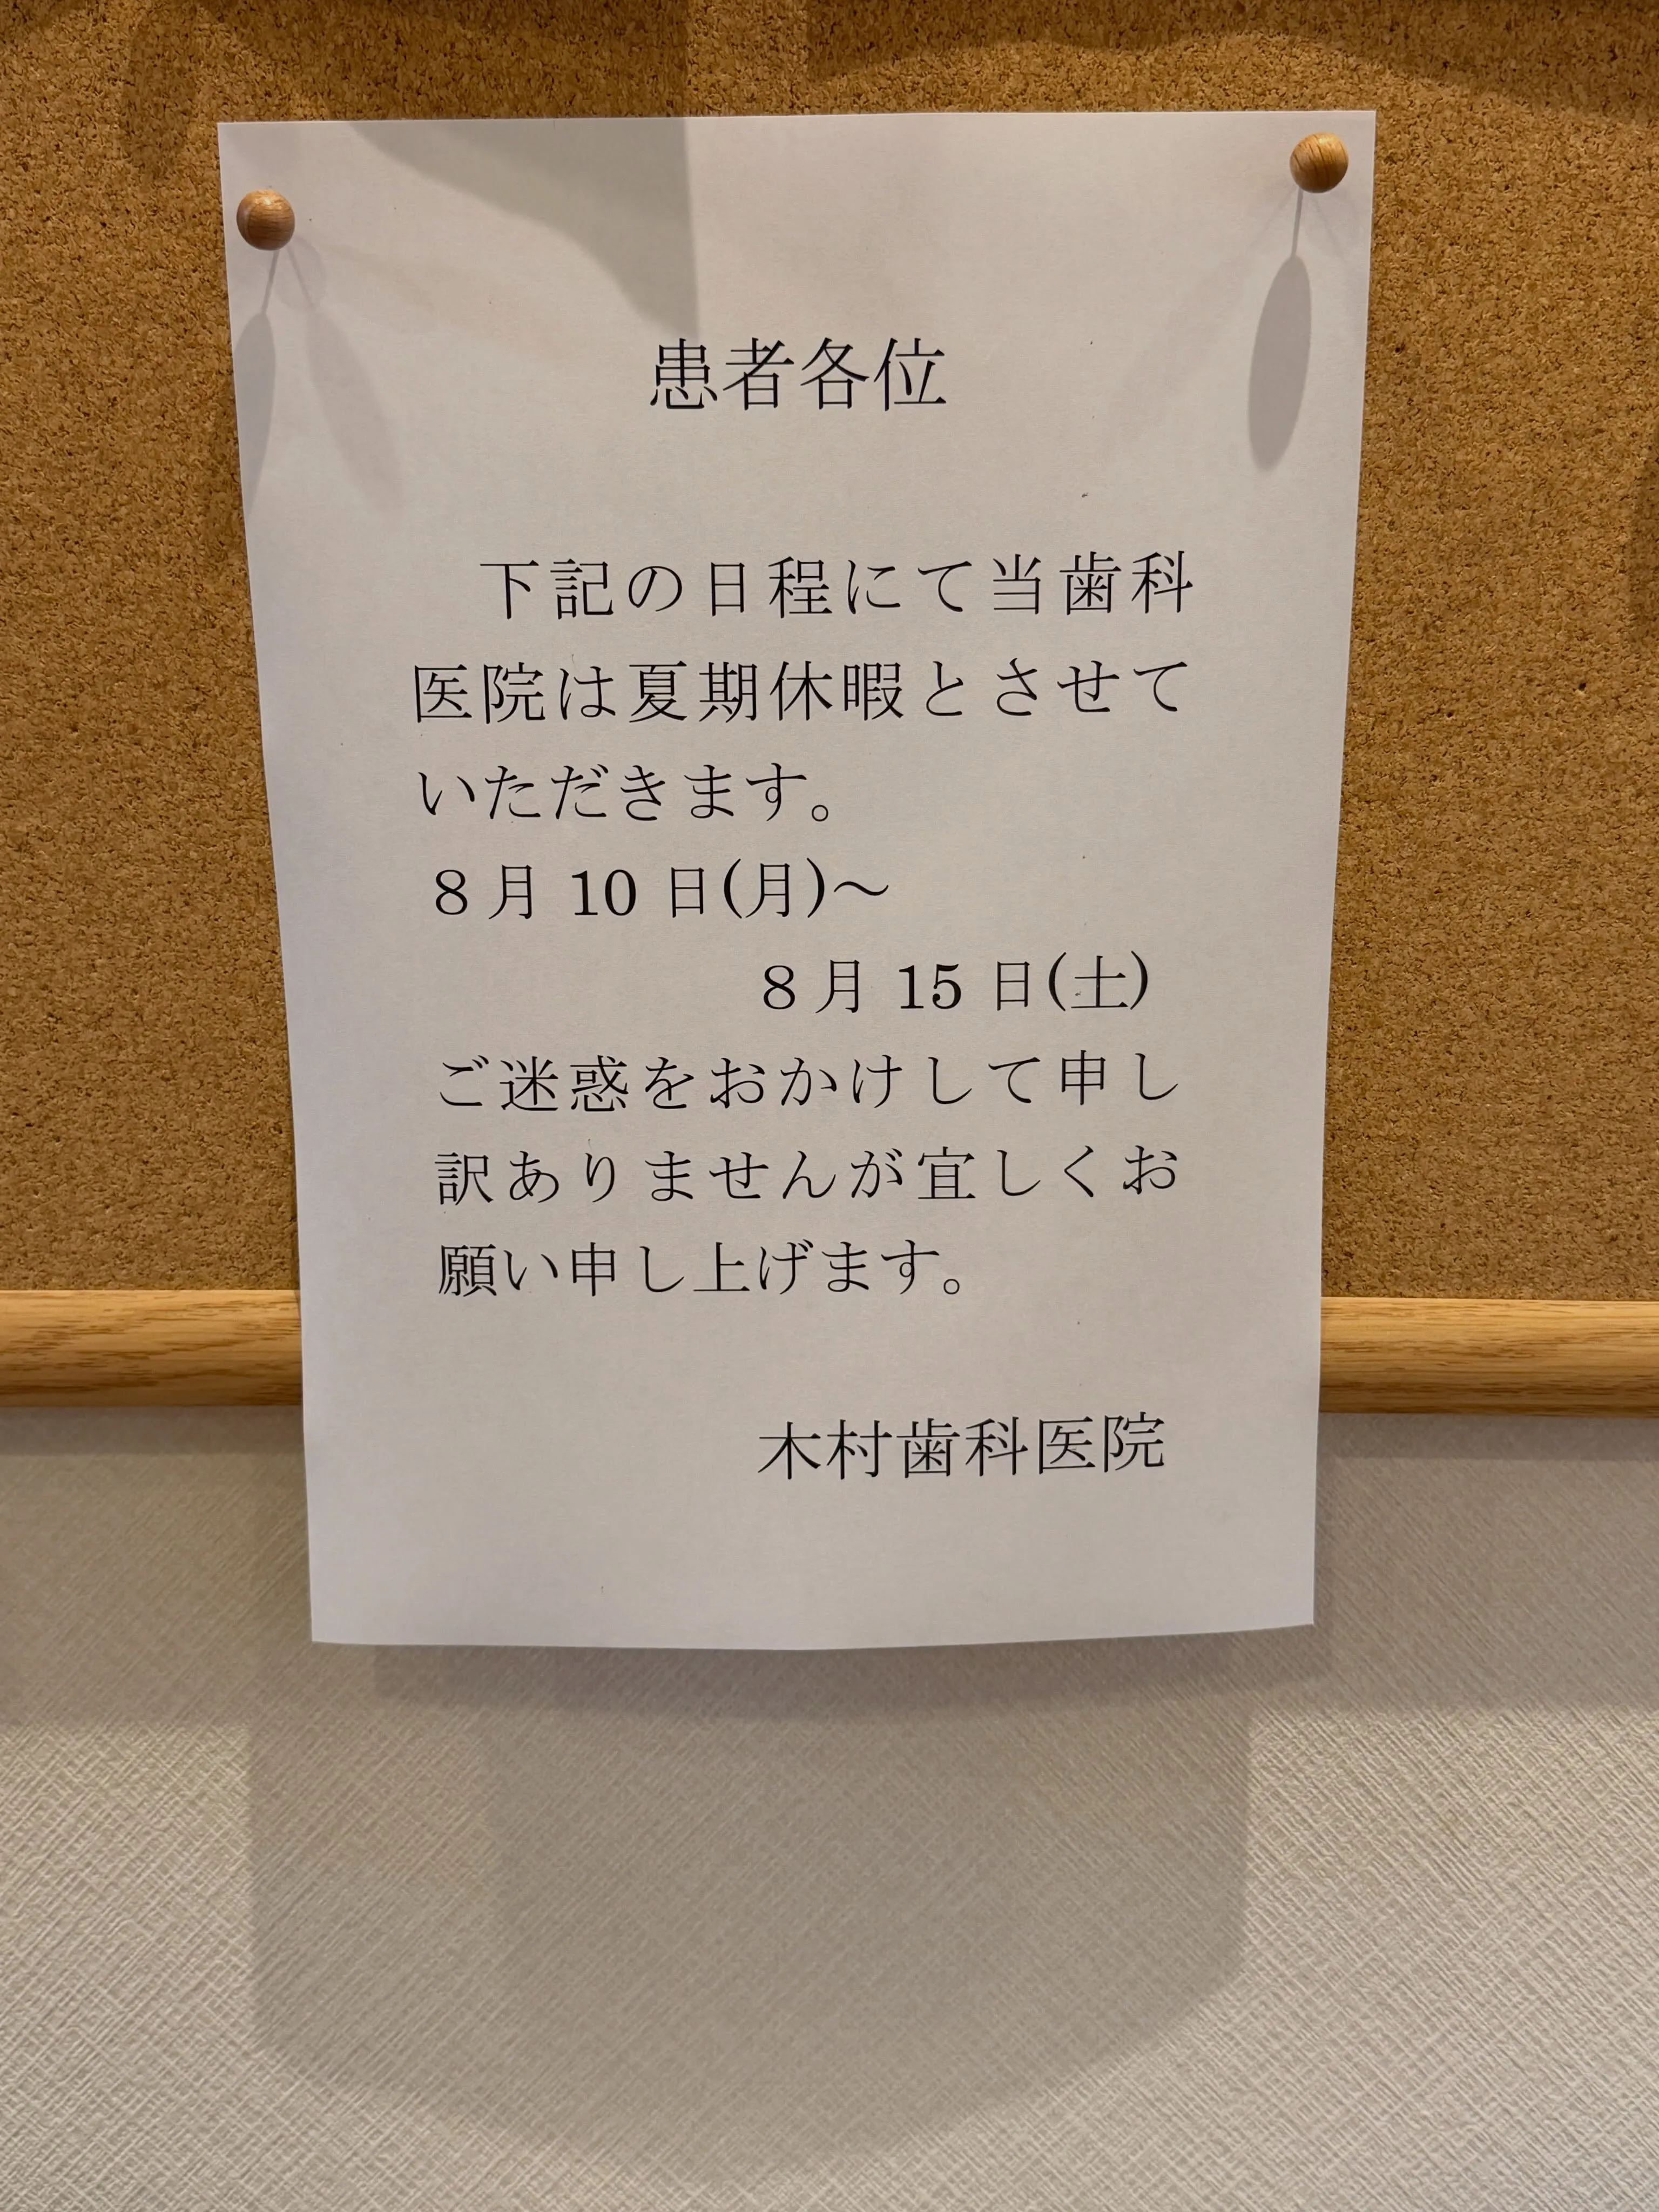 患者各位
下記の日程にて当歯科
医院は夏期休暇とさせて
いただきます。
８月 10 日(月)～
８月 15 日(土)
ご迷惑をおかけして申し
訳ありませんが宜しくお
願い申し上げます。
木村歯科医院